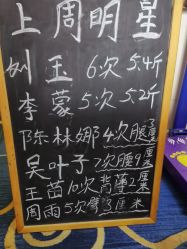 上周明星
刘玉6次5.4斤
李蒙5次5.2斤
陈林娜4次腿3厘
吴叶子7次腰9厘
王苗10次背薄2厘
周雨5次臂3厘米